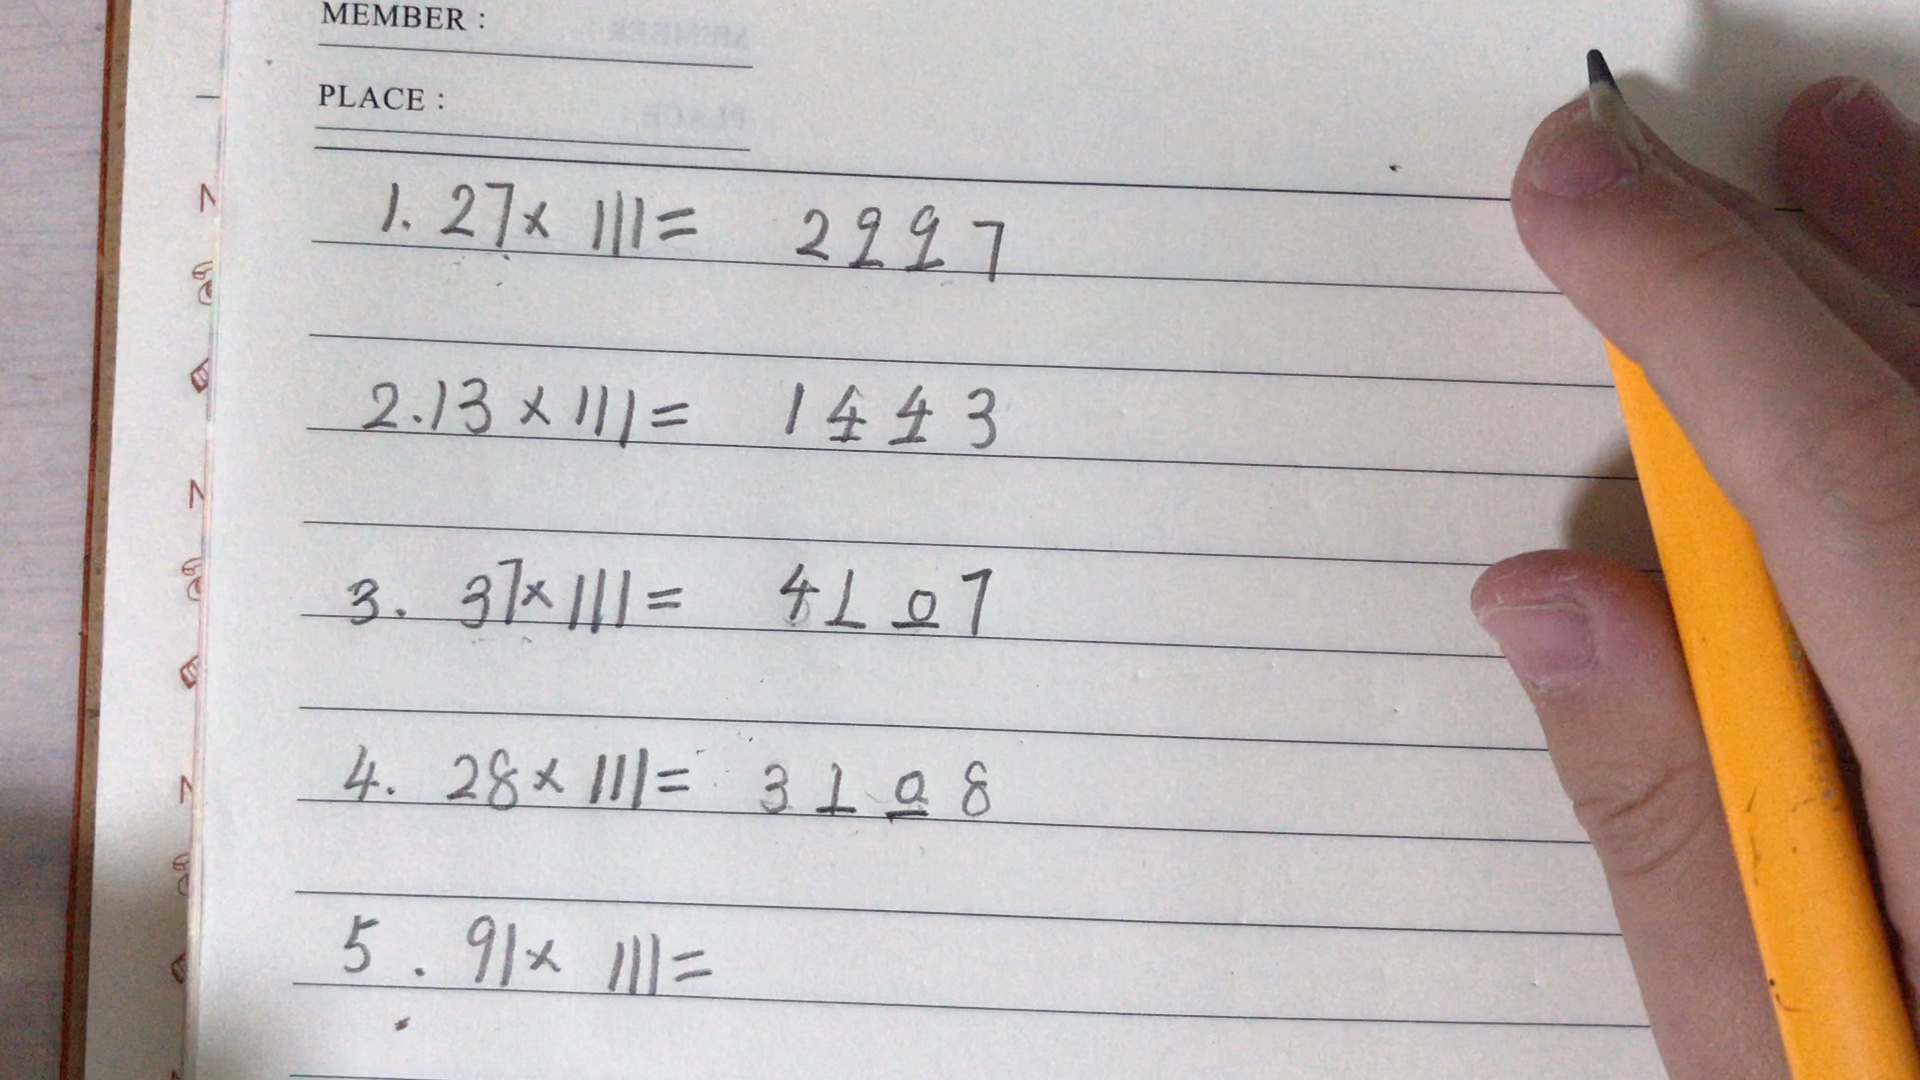 MEMBER :
PLACE :
1. 27 x 111 = 2997
2. 13 x 111 = 1443
3. 37 x 111 = 4107
4. 28 x 111 = 3108
5. 91 x 111 =